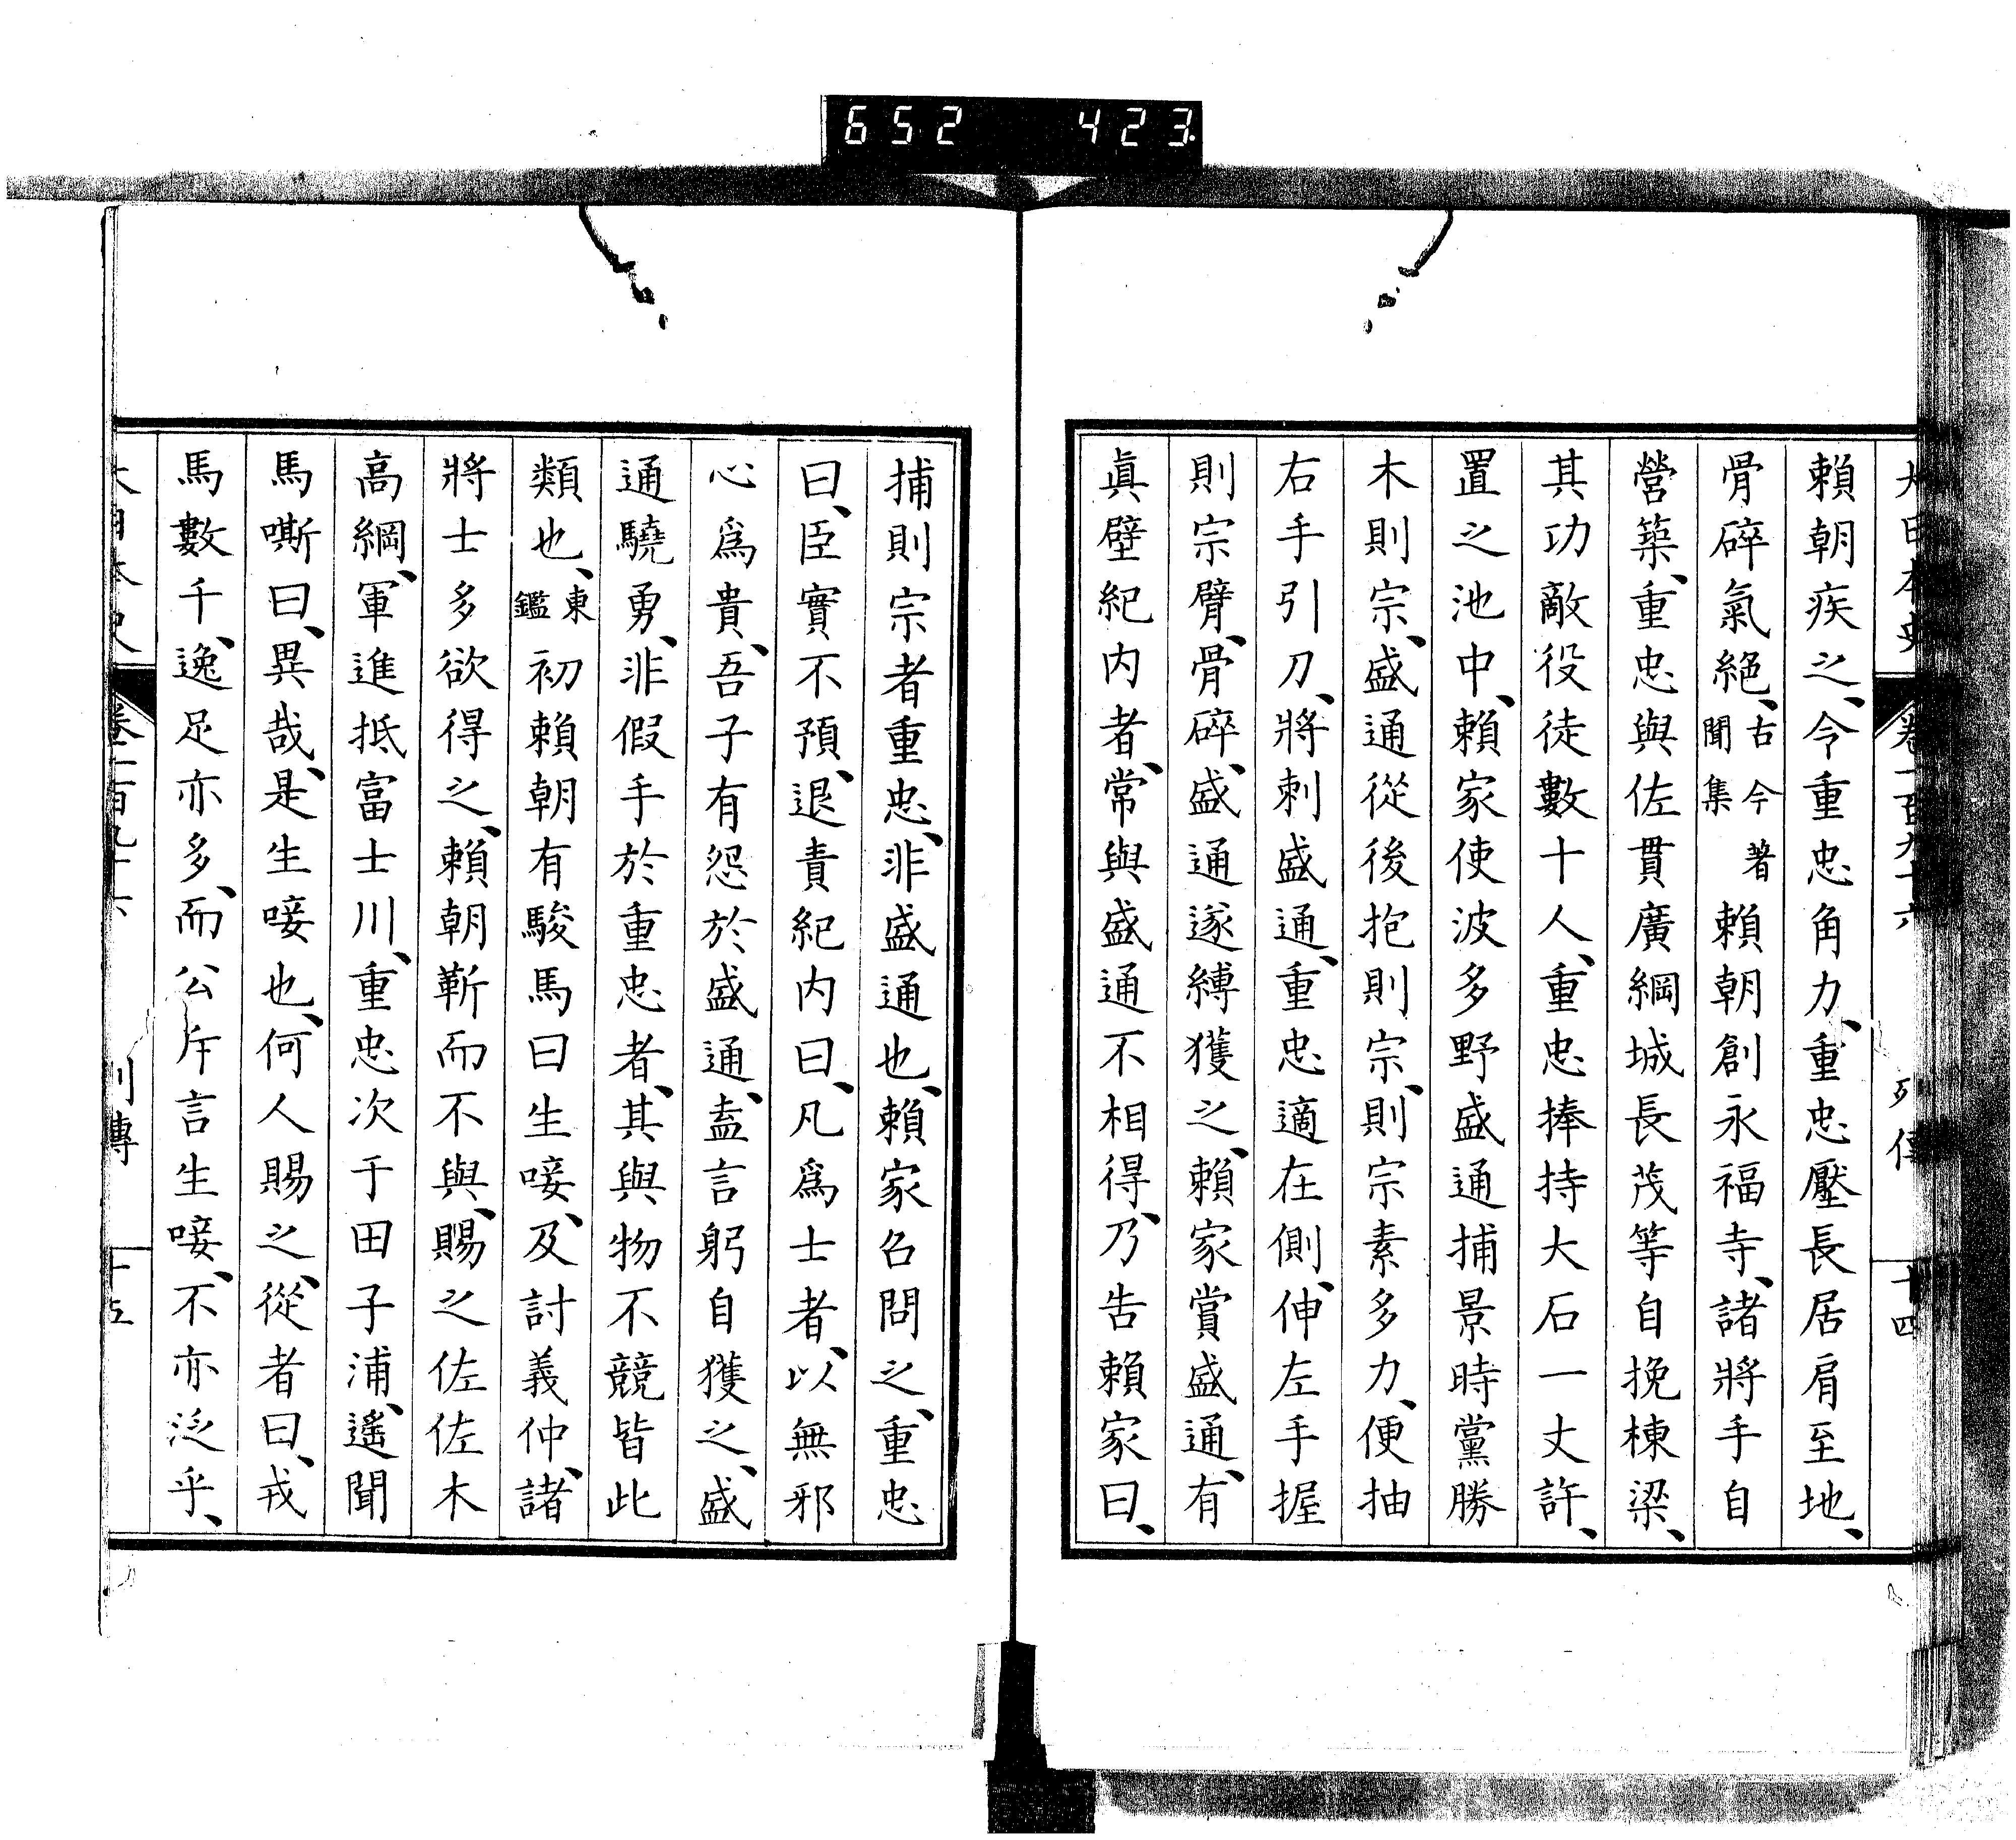 652 423
大日本史 卷一百九十六 列傳 十四
賴朝疾之、令重忠角力、重忠壓長居肩至地、
骨碎氣絕、古今著聞集 賴朝創永福寺、諸將手自
營築、重忠與佐貫廣綱城長茂等自挽棟梁、
其功敵役徒數十人、重忠捧持大石一丈許、
置之池中、賴家使波多野盛通捕景時黨勝
木則宗、盛通從後抱則宗、則宗素多力、便抽
右手引刀、將刺盛通、重忠適在側、伸左手握
則宗臂、骨碎、盛通遂縛獲之、賴家賞盛通、有
眞壁紀內者、常與盛通不相得、乃告賴家曰、
捕則宗者重忠、非盛通也、賴家召問之、重忠
曰、臣實不預、退責紀內曰、凡爲士者、以無邪
心爲貴、吾子有怨於盛通、盍言躬自獲之、盛
通驍勇、非假手於重忠者、其與物不競皆此
類也、東鑑 初賴朝有駿馬曰生唼、及討義仲、諸
將士多欲得之、賴朝靳而不與、賜之佐佐木
高綱、軍進抵富士川、重忠次于田子浦、遙聞
馬嘶曰、異哉、是生唼也、何人賜之、從者曰、戎
馬數千、逸足亦多、而公斥言生唼、不亦泛乎、
大日本史 卷一百九十六 列傳 十五